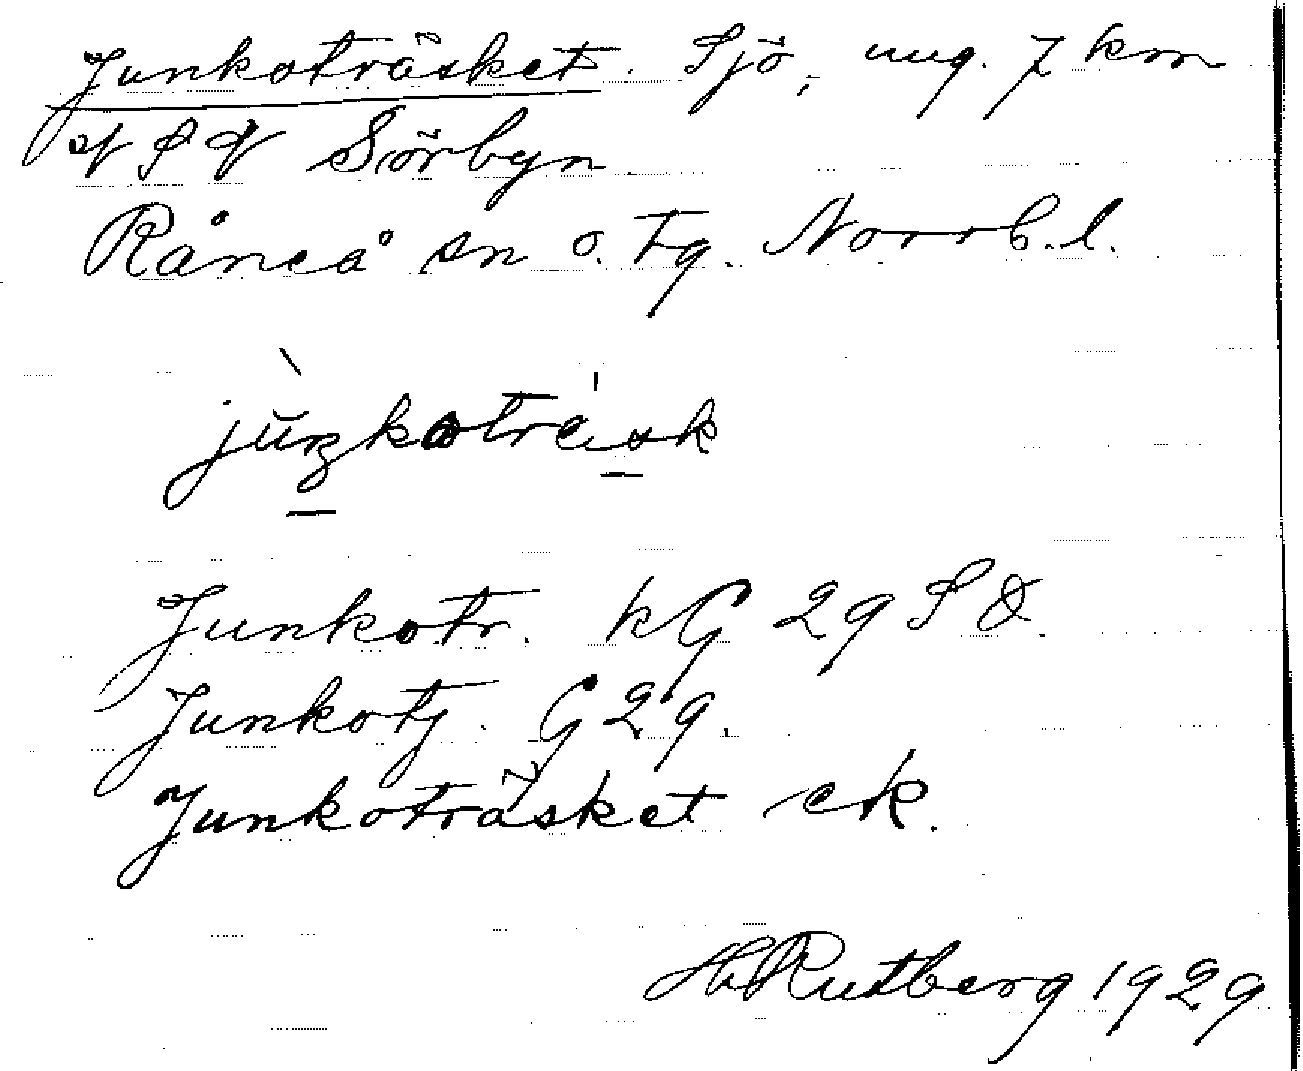 Junkoträsket. Sjö, ung. 7 km
af S af Sörbyn
Råneå sn o. tg. Norrb. l.
Junkotr. kG 29 SO.
Junkotj. G 29.
Junkoträsket ek.
H Rutberg 1929